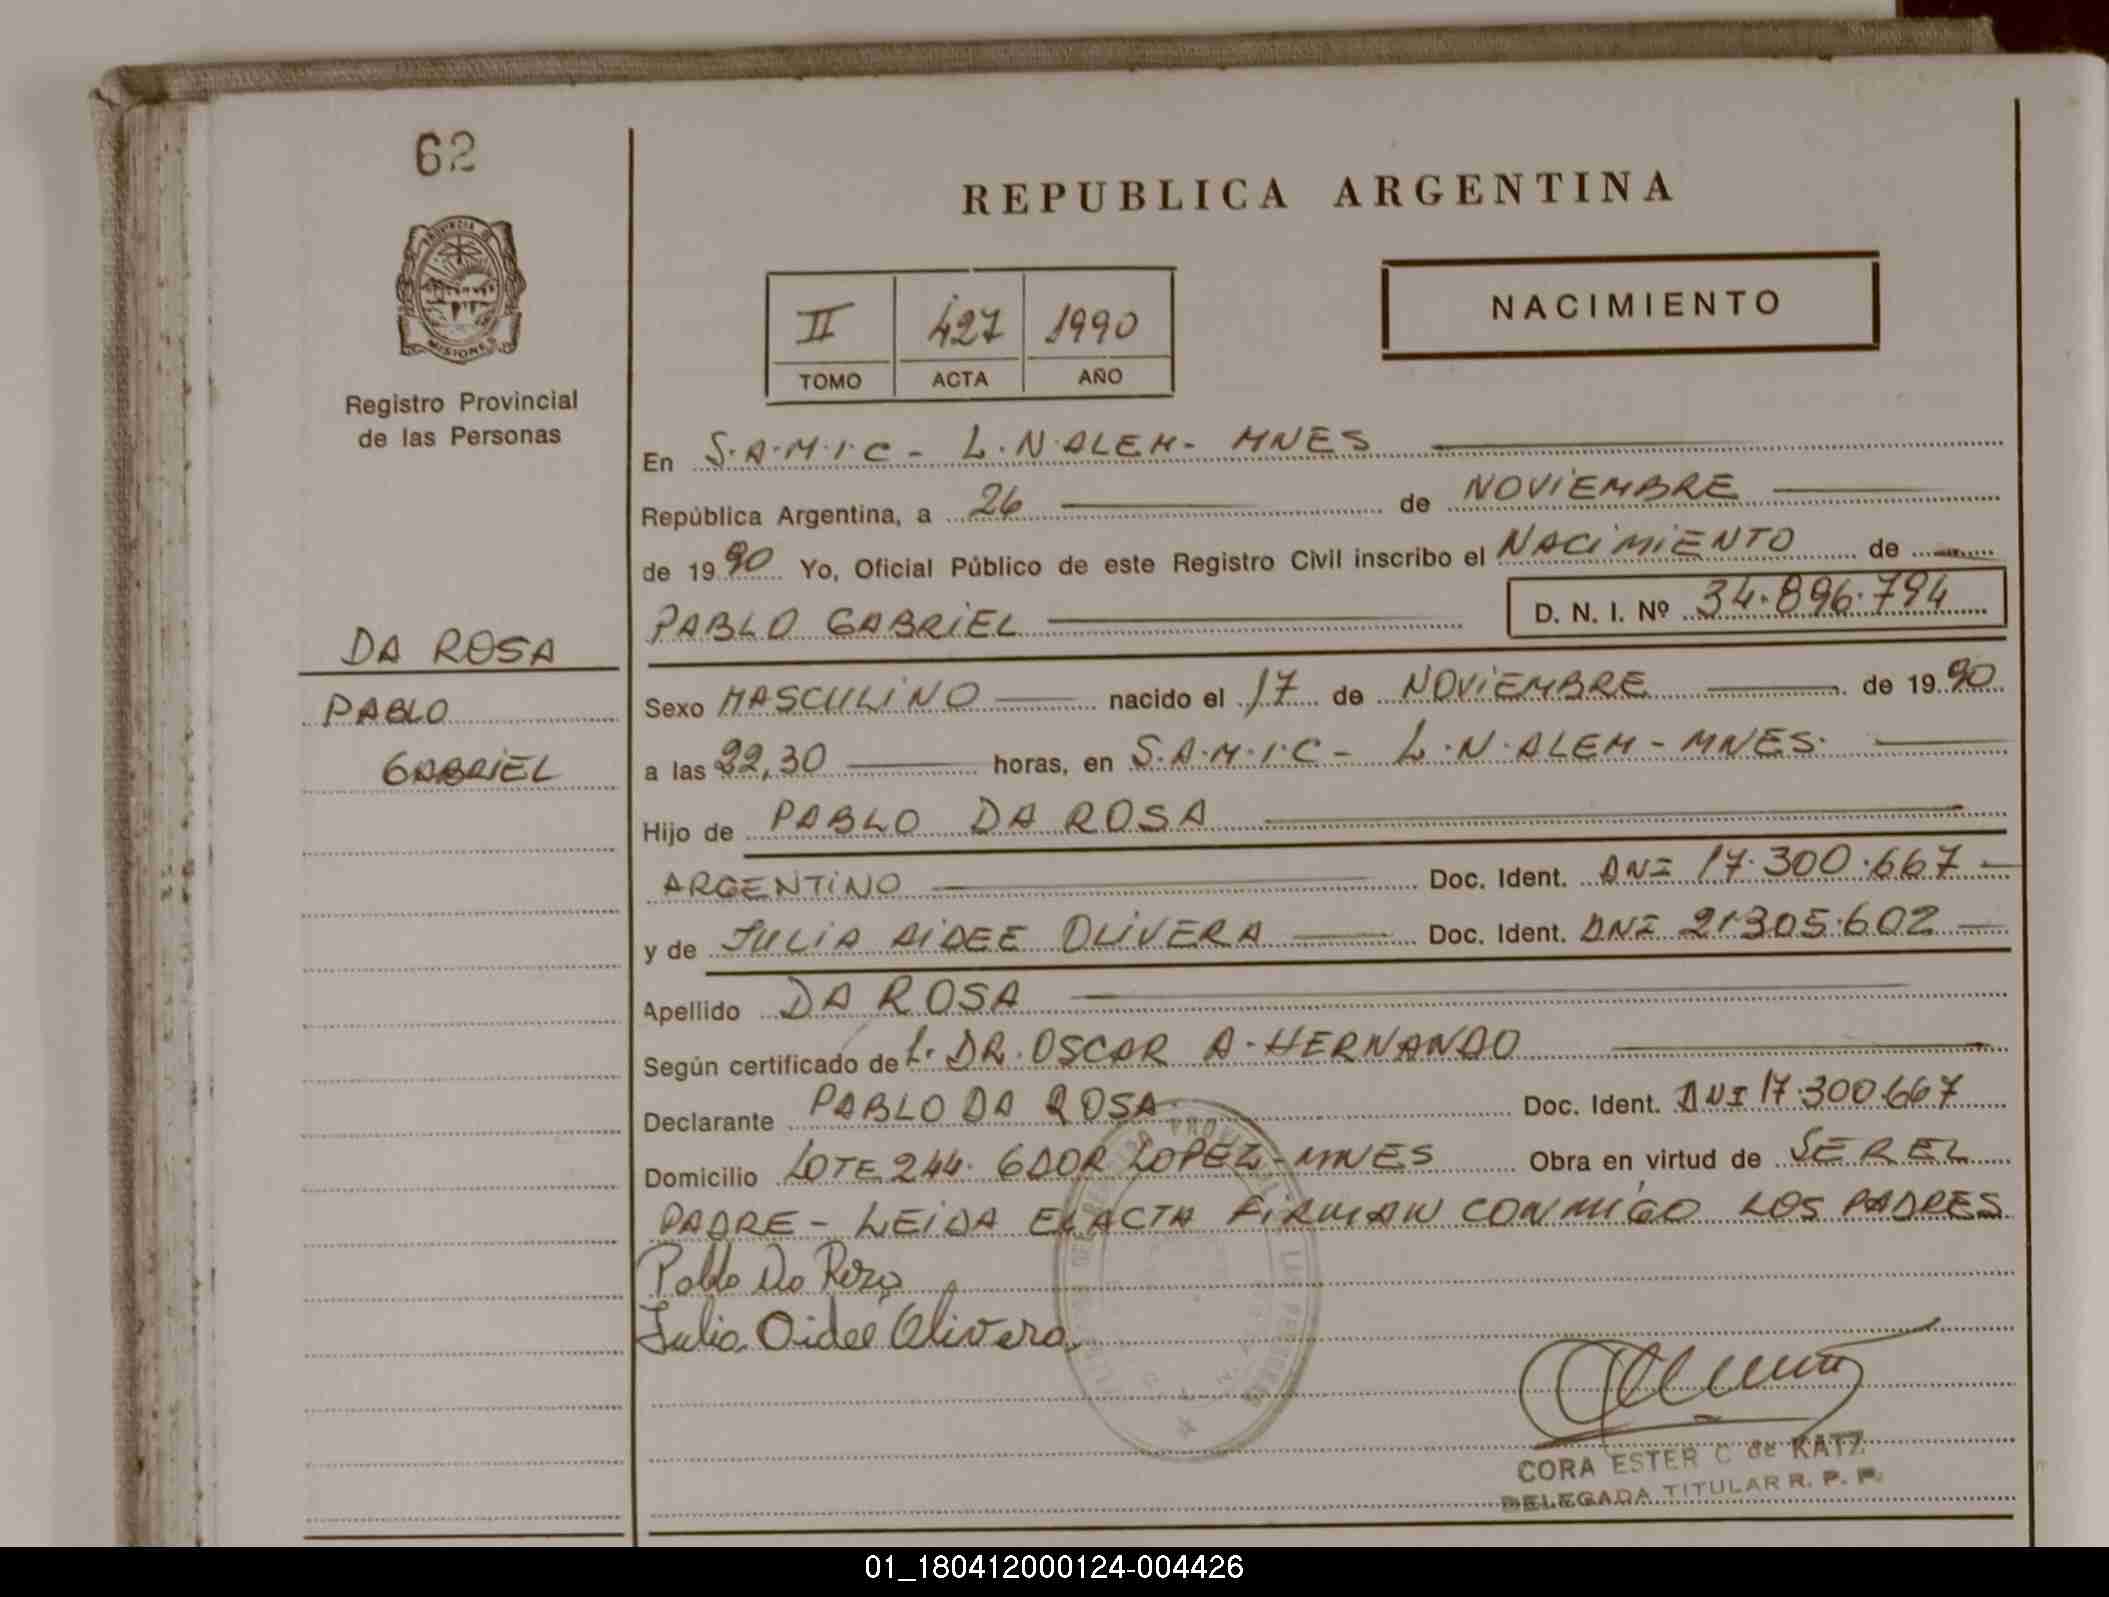 62
REPUBLICA ARGENTINA
PROVINCIA DE
MISIONES
Registro Provincial
de las Personas
II 427 1990
TOMO ACTA AÑO
NACIMIENTO
En S.A.M.I.C - L.N.ALEM- MNES
República Argentina, a 26 de NOVIEMBRE
de 1990 Yo, Oficial Público de este Registro Civil inscribo el NACIMIENTO de
PABLO GABRIEL D. N. I. Nº 34.896.794
DA ROSA
PABLO
GABRIEL
Sexo MASCULINO nacido el 17 de NOVIEMBRE de 1990
a las 22,30 horas, en S.A.M.I.C - L.N.ALEM - MNES.
Hijo de PABLO DA ROSA
ARGENTINO Doc. Ident. DNI 17.300.667
y de JULIA AIDEE OLIVERA Doc. Ident. DNI 21.305.602
Apellido DA ROSA
Según certificado de L. DR. OSCAR A. HERNANDO
Declarante PABLO DA ROSA Doc. Ident. DNI 17.300.667
Domicilio LOTE 244. GDOR LOPEZ - MNES Obra en virtud de SER EL
PADRE - LEIDA EL ACTA FIRMAN CONMIGO LOS PADRES
Pablo Da Rosa
Julia Aidee Olivera
CORA ESTER C de KATZ
DELEGADA TITULAR R. P. P.
01_180412000124-004426